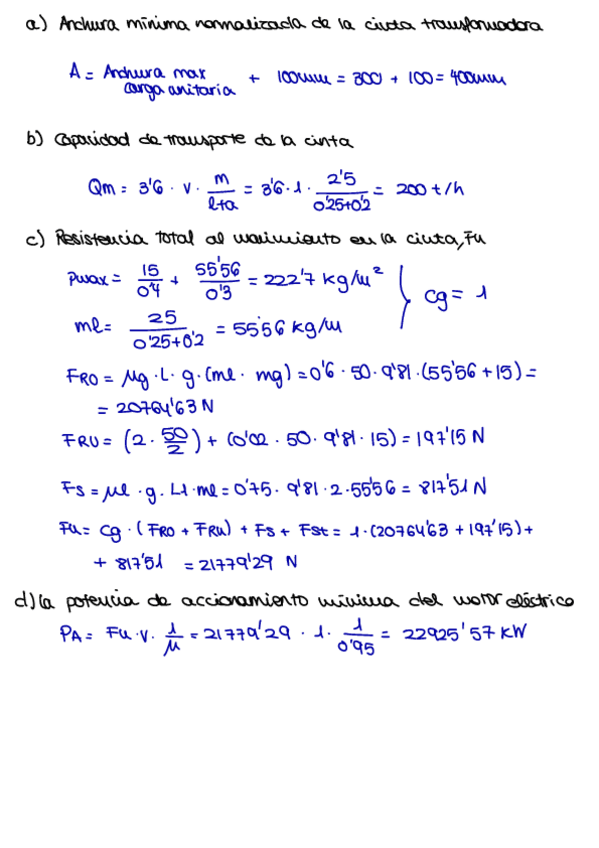 a) Anchura mínima normalizada de la cinta transformadora
A = Anchura max carga unitaria + 100mm = 300 + 100 = 400mm
b) Capacidad de transporte de la cinta
Qm = 3'6 · v · m/(l+a) = 3'6 · 1 · 2'5/(0'25+0'2) = 200 t/h
c) Resistencia total al movimiento en la cinta, Fu
Pmax = 15/0'4 + 55'56/0'3 = 222'7 kg/m² } cg = 1
ml = 25/(0'25+0'2) = 55'56 kg/m
FRO = μg · L · g · (ml · mg) = 0'6 · 50 · 9'81 · (55'56 + 15) =
= 20764'63 N
FRU = (2 · 50/2) + (0'02 · 50 · 9'81 · 15) = 197'15 N
Fs = μl · g · L1 · ml = 0'75 · 9'81 · 2 · 55'56 = 817'51 N
Fu = cg · (FRO + FRU) + Fs + Fst = 1 · (20764'63 + 197'15) +
+ 817'51 = 21779'29 N
d) La potencia de accionamiento mínima del motor eléctrico
PA = Fu · v · 1/μ = 21779'29 · 1 · 1/0'95 = 22925'57 KW